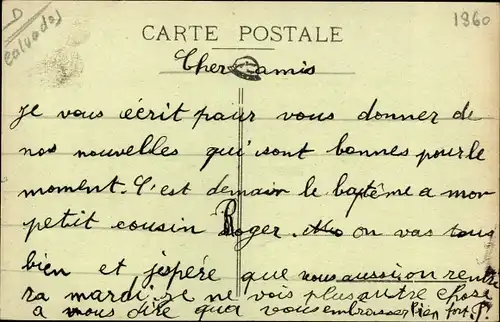 D
Calvados
1360
CARTE POSTALE
Cher amis
Je vous écrit pour vous donner de
nos nouvelles qui sont bonnes pour le
moment. C'est demain le baptême a mon
petit cousin Roger. on vas tous
bien et j'espére que vous aussi on rentre
ra mardi. je ne vois plus autre chose
a vous dire que vous embrasser bien fort.